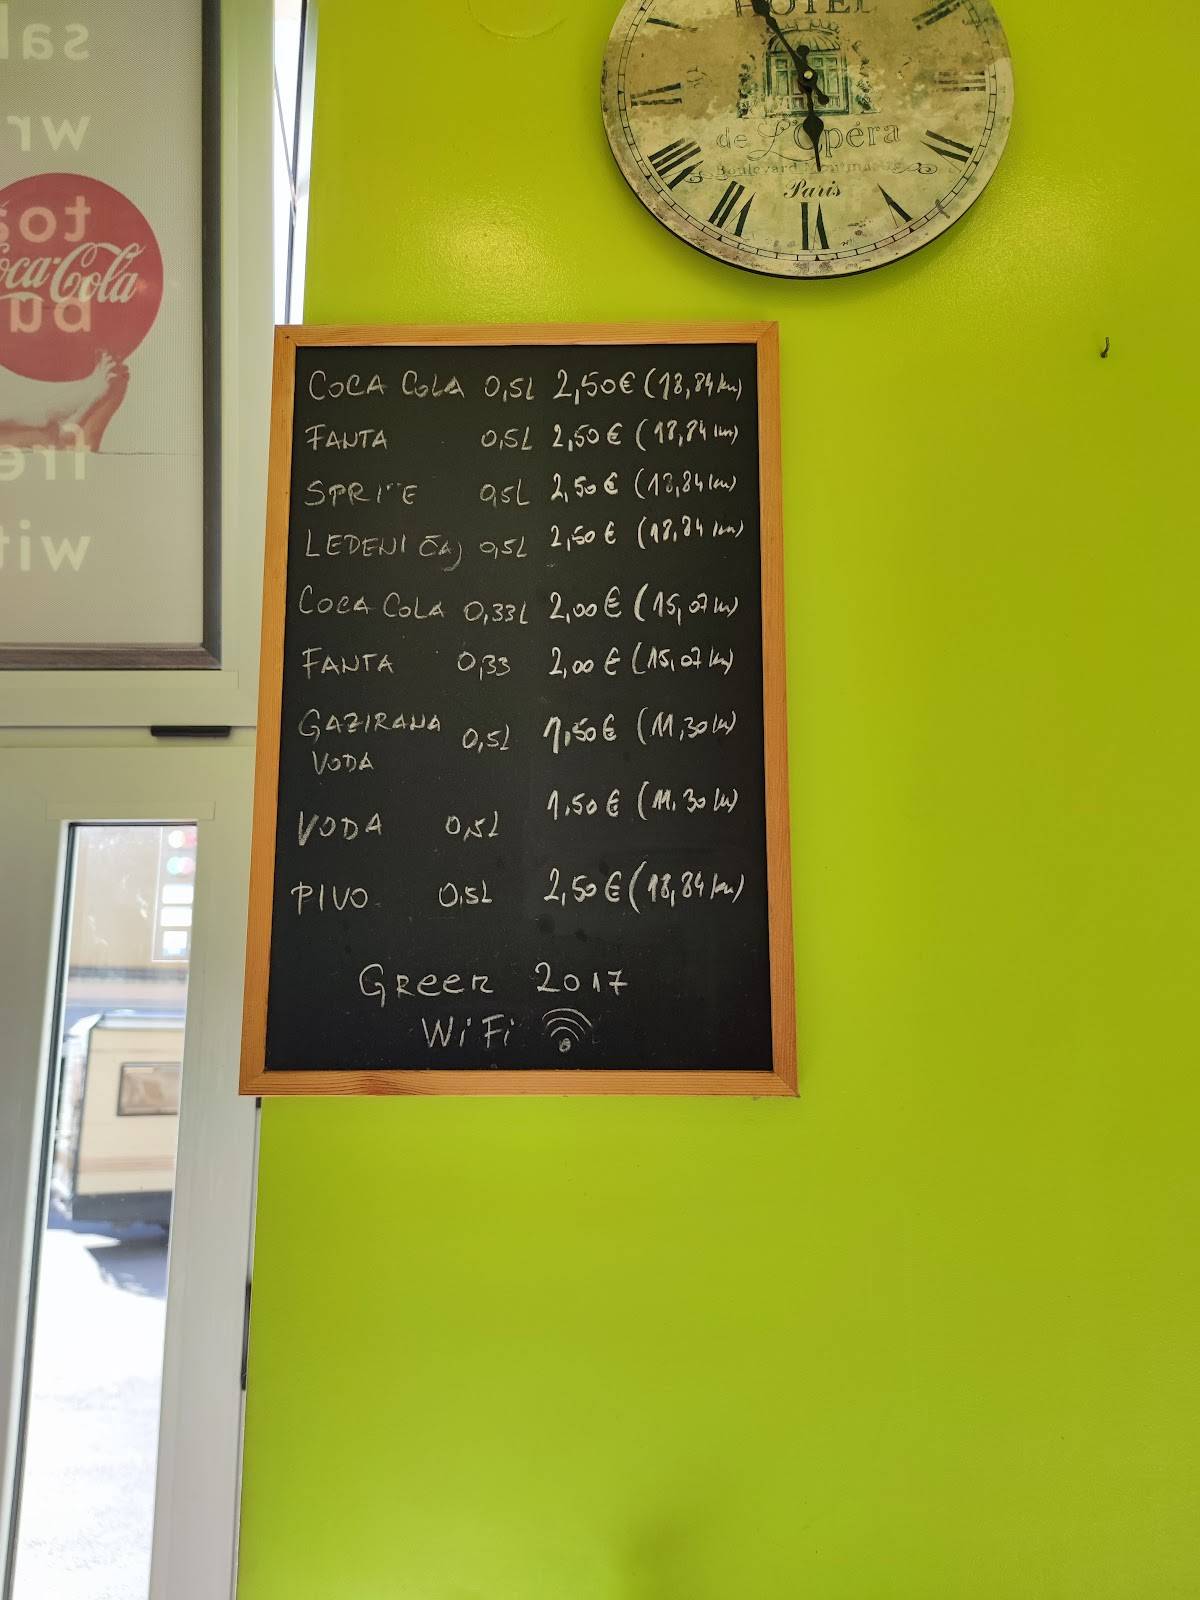 HOTEL
de L'Opéra
Paris
Coca-Cola
COCA COLA 0,5L 2,50€ (18,84 kn)
FANTA 0,5L 2,50€ (18,84 kn)
SPRITE 0,5L 2,50€ (18,84 kn)
LEDENI ČAJ 0,5L 2,50€ (18,84 kn)
COCA COLA 0,33L 2,00€ (15,07 kn)
FANTA 0,33 2,00€ (15,07 kn)
GAZIRANA 0,5L 1,50€ (11,30 kn)
VODA
VODA 0,5L 1,50€ (11,30 kn)
PIVO 0,5L 2,50€ (18,84 kn)
Green 2017
WiFi